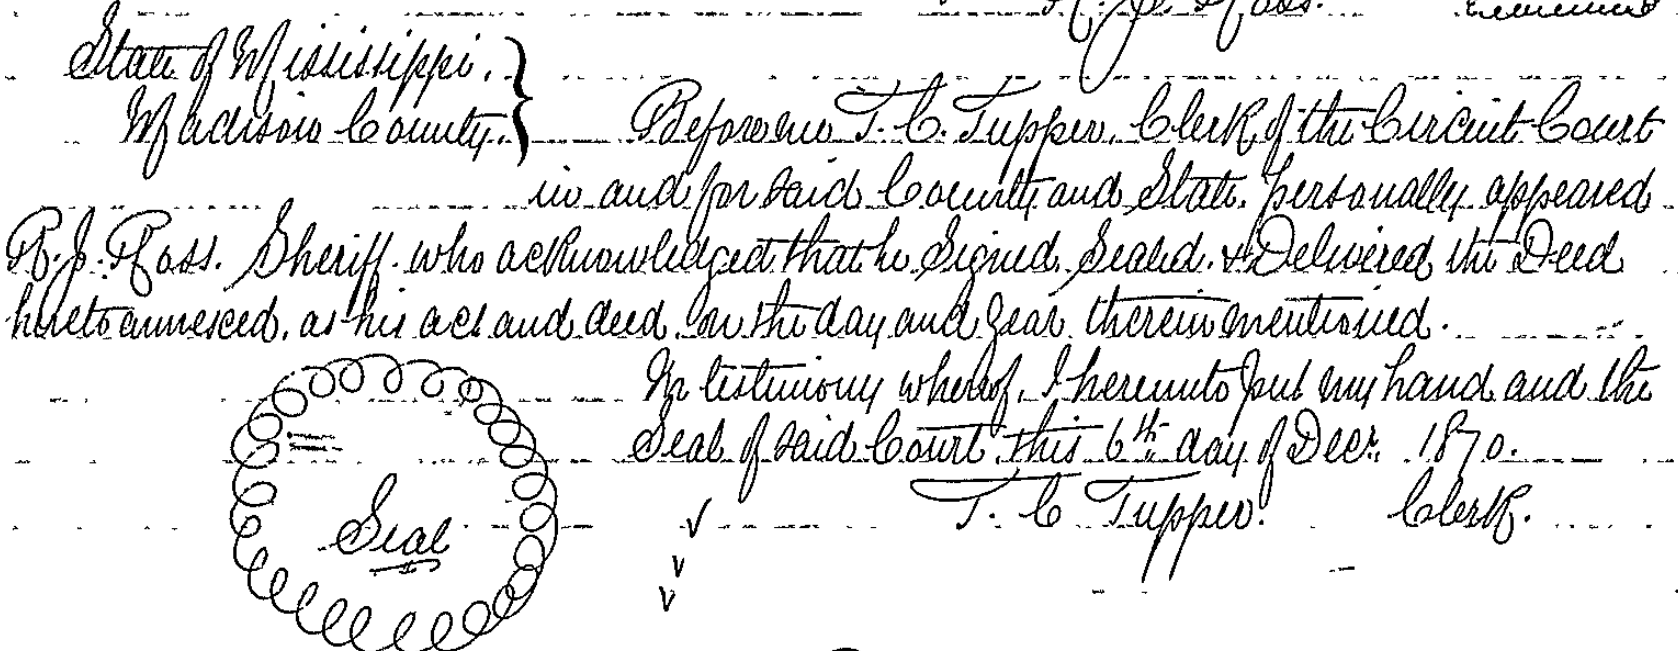 R. J. Ross.
State of Mississippi.
Madison County. } Before me T. C. Tupper, Clerk of the Circuit Court
in and for said County and State, personally appeared
R. J. Ross. Sheriff. who acknowledged that he Signed, Sealed, & Delivered the Deed
hereto annexed, as his act and deed, on the day and year therein mentioned.
In testimony whereof, I hereunto put my hand and the
Seal of said Court this 6th day of Decr. 1870.
Seal
T. C Tupper. Clerk.